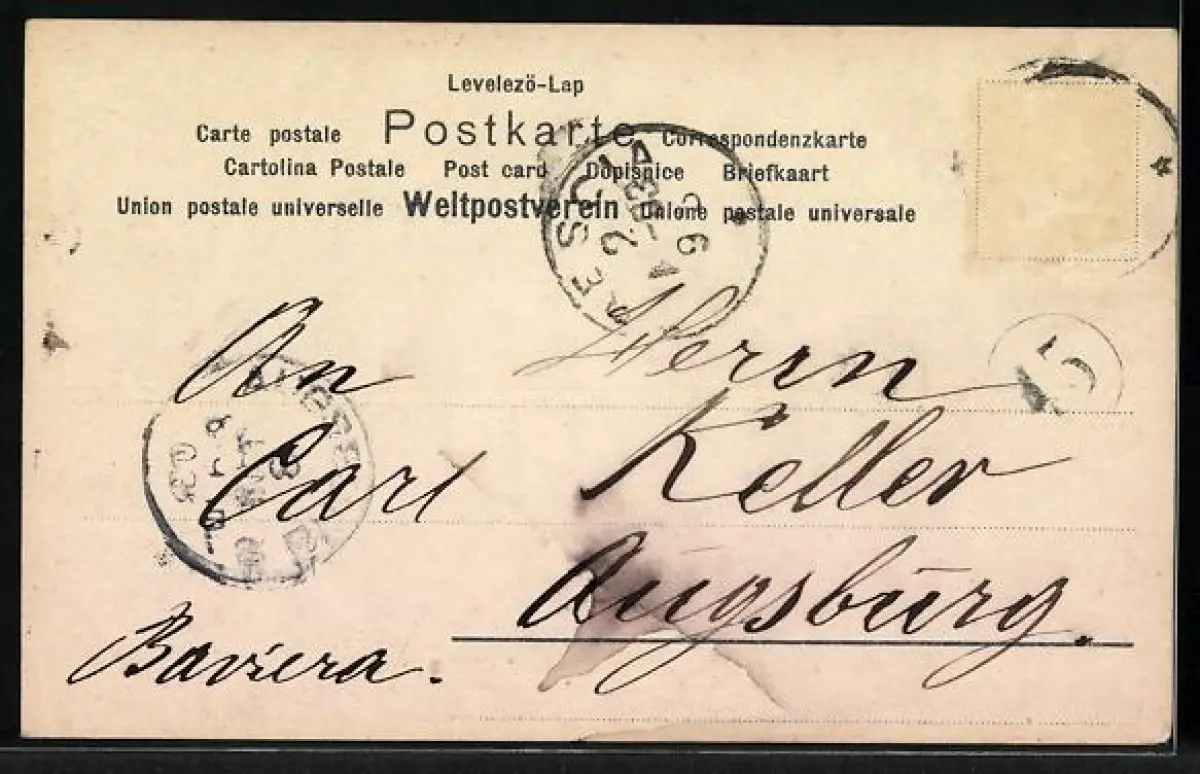 Levelezö-Lap
Carte postale Postkarte Correspondenzkarte
Cartolina Postale Post card Dopisnice Briefkaart
Union postale universelle Weltpostverein Unione postale universale
An Herrn
Carl Keller
Augsburg.
Baviera.